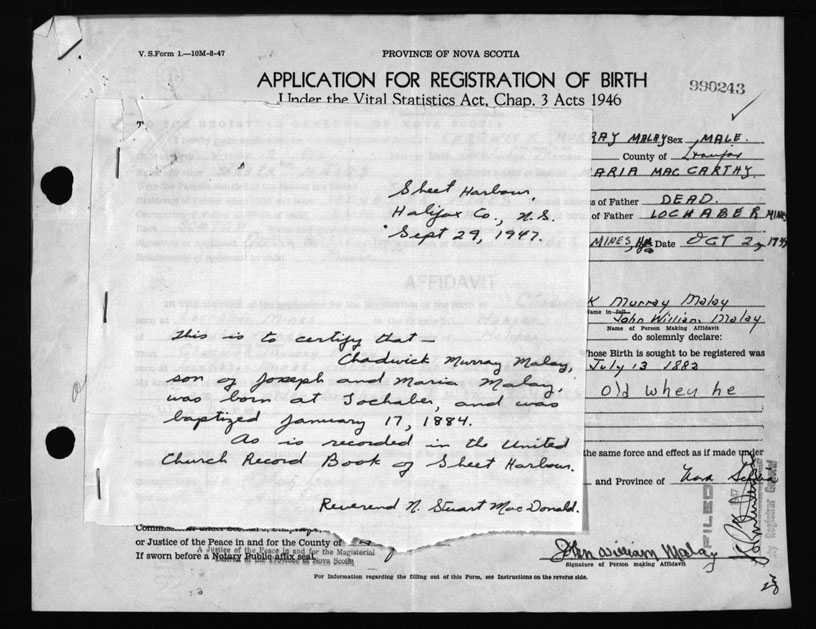 V. S. Form 1.—10M-8-47
PROVINCE OF NOVA SCOTIA
APPLICATION FOR REGISTRATION OF BIRTH
990243
Under the Vital Statistics Act, Chap. 3 Acts 1946
RAY MALAY Sex MALE.
County of Halifax
MARIA MAC CARTHY
Sheet Harbour,
s of Father DEAD.
Halifax Co., N.S.
of Father LOCHABER MINES
Sept 29, 1947.
MINES, Date OCT 2, 1947
AFFIDAVIT
K Murray Malay
Name in full
John William Malay
Name of Person Making Affidavit
This is to certify that —
do solemnly declare:
Chadwick Murray Malay,
hose Birth is sought to be registered was
son of Joseph and Maria Malay,
July 13 1882
was born at Lochaber, and was
old when he
baptized January 17, 1884.
As is recorded in the United
the same force and effect as if made under
Church Record Book of Sheet Harbour.
and Province of Nova Scotia
Reverend N. Stuart MacDonald.
FILED
Registrar General
or Justice of the Peace in and for the County of
A Justice of the Peace in and for the Magisterial
If sworn before a Notary Public affix seal.
of the Province of Nova Scotia
John William Malay
Signature of Person making Affidavit
For Information regarding the filling out of this Form, see Instructions on the reverse side.